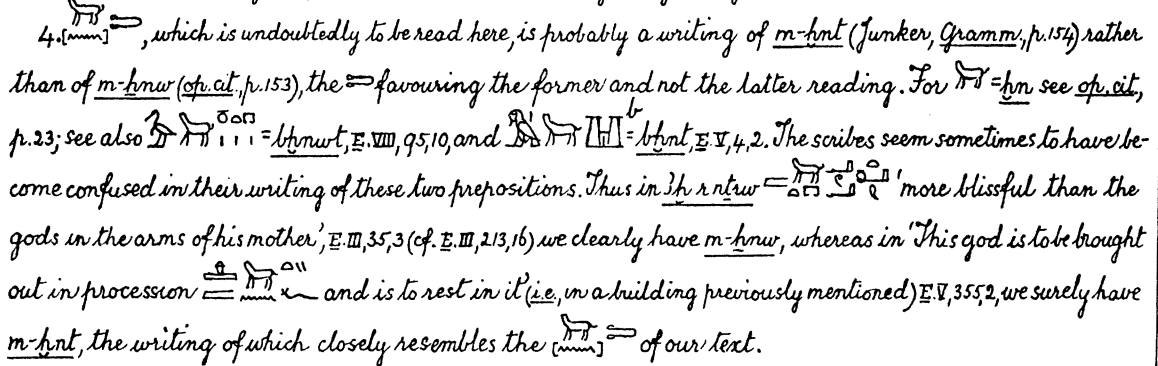 4. [ ] , which is undoubtedly to be read here, is probably a writing of m-ḫnt (Junker, Gramm., p.154) rather
than of m-ẖnw (op. cit., p.153), the favouring the former and not the latter reading. For = ḫn see op. cit.,
p.23; see also = bḫnwt, E. VIII, 95, 10, and b = bḫnt, E. V, 4, 2. The scribes seem sometimes to have be-
come confused in their writing of these two prepositions. Thus in ꜣḫ r nṯrw 'more blissful than the
gods in the arms of his mother', E. III, 35, 3 (cf. E. III, 213, 16) we clearly have m-ẖnw, whereas in 'This god is to be brought
out in procession and is to rest in it' (i.e., in a building previously mentioned) E. V, 355, 2, we surely have
m-ḫnt, the writing of which closely resembles the [ ] of our text.